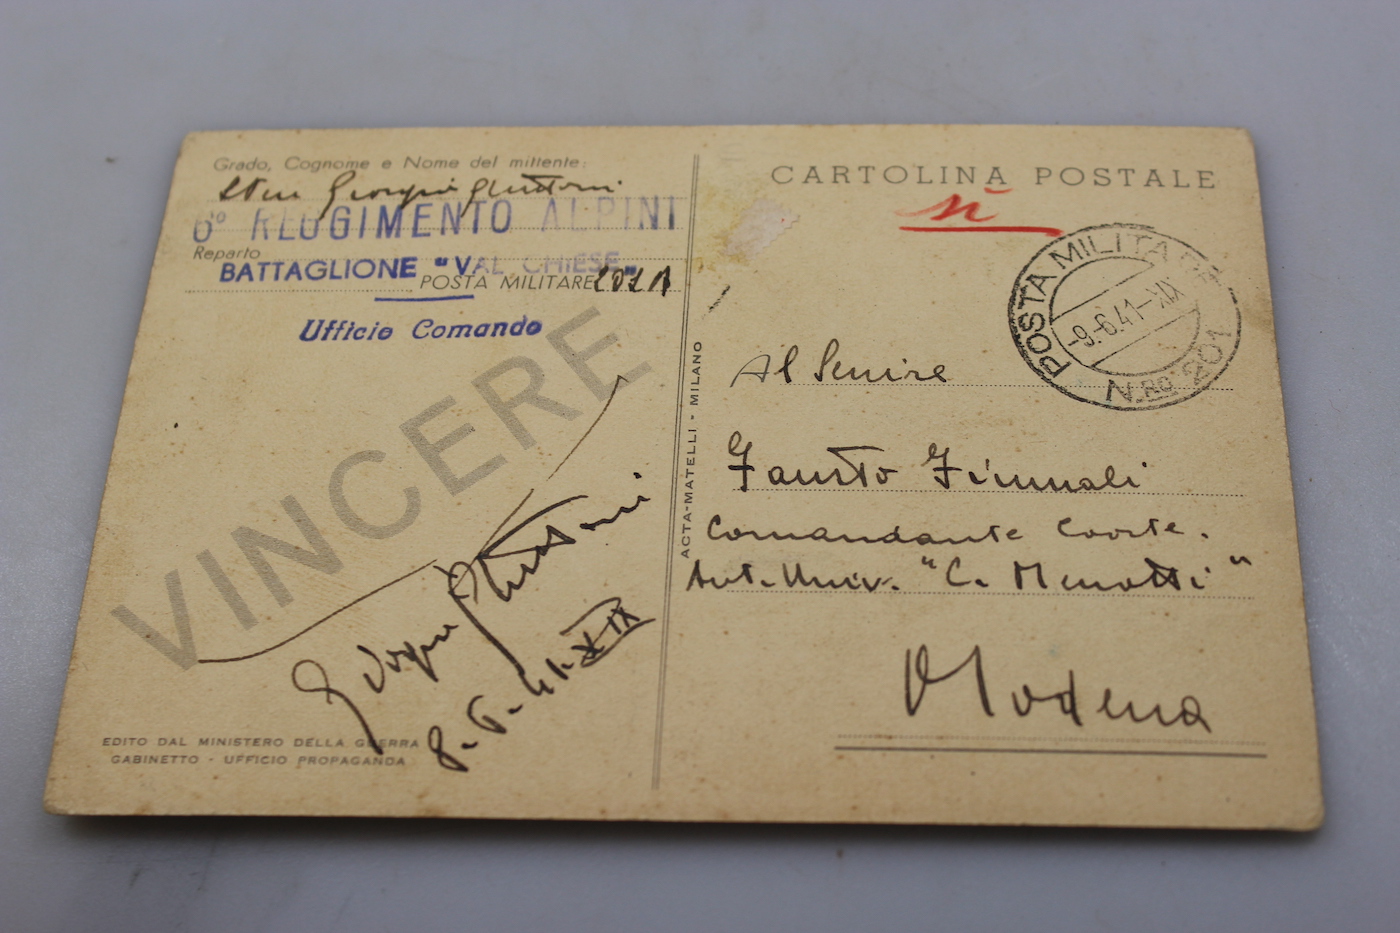 Grado, Cognome e Nome del mittente:
6° REGGIMENTO ALPINI
Reparto
BATTAGLIONE "VAL CHIESE"
POSTA MILITARE 201 A
Ufficio Comando
VINCERE
Giorgio
8-6-41-XIX
EDITO DAL MINISTERO DELLA GUERRA
GABINETTO - UFFICIO PROPAGANDA
ACTA-MATELLI - MILANO
CARTOLINA POSTALE
POSTA MILITARE
-9.6.41-XIX
N.RO 201
Al
Fausto
Comandante Coorte.
Aut. Univ. "C. Menotti"
Modena